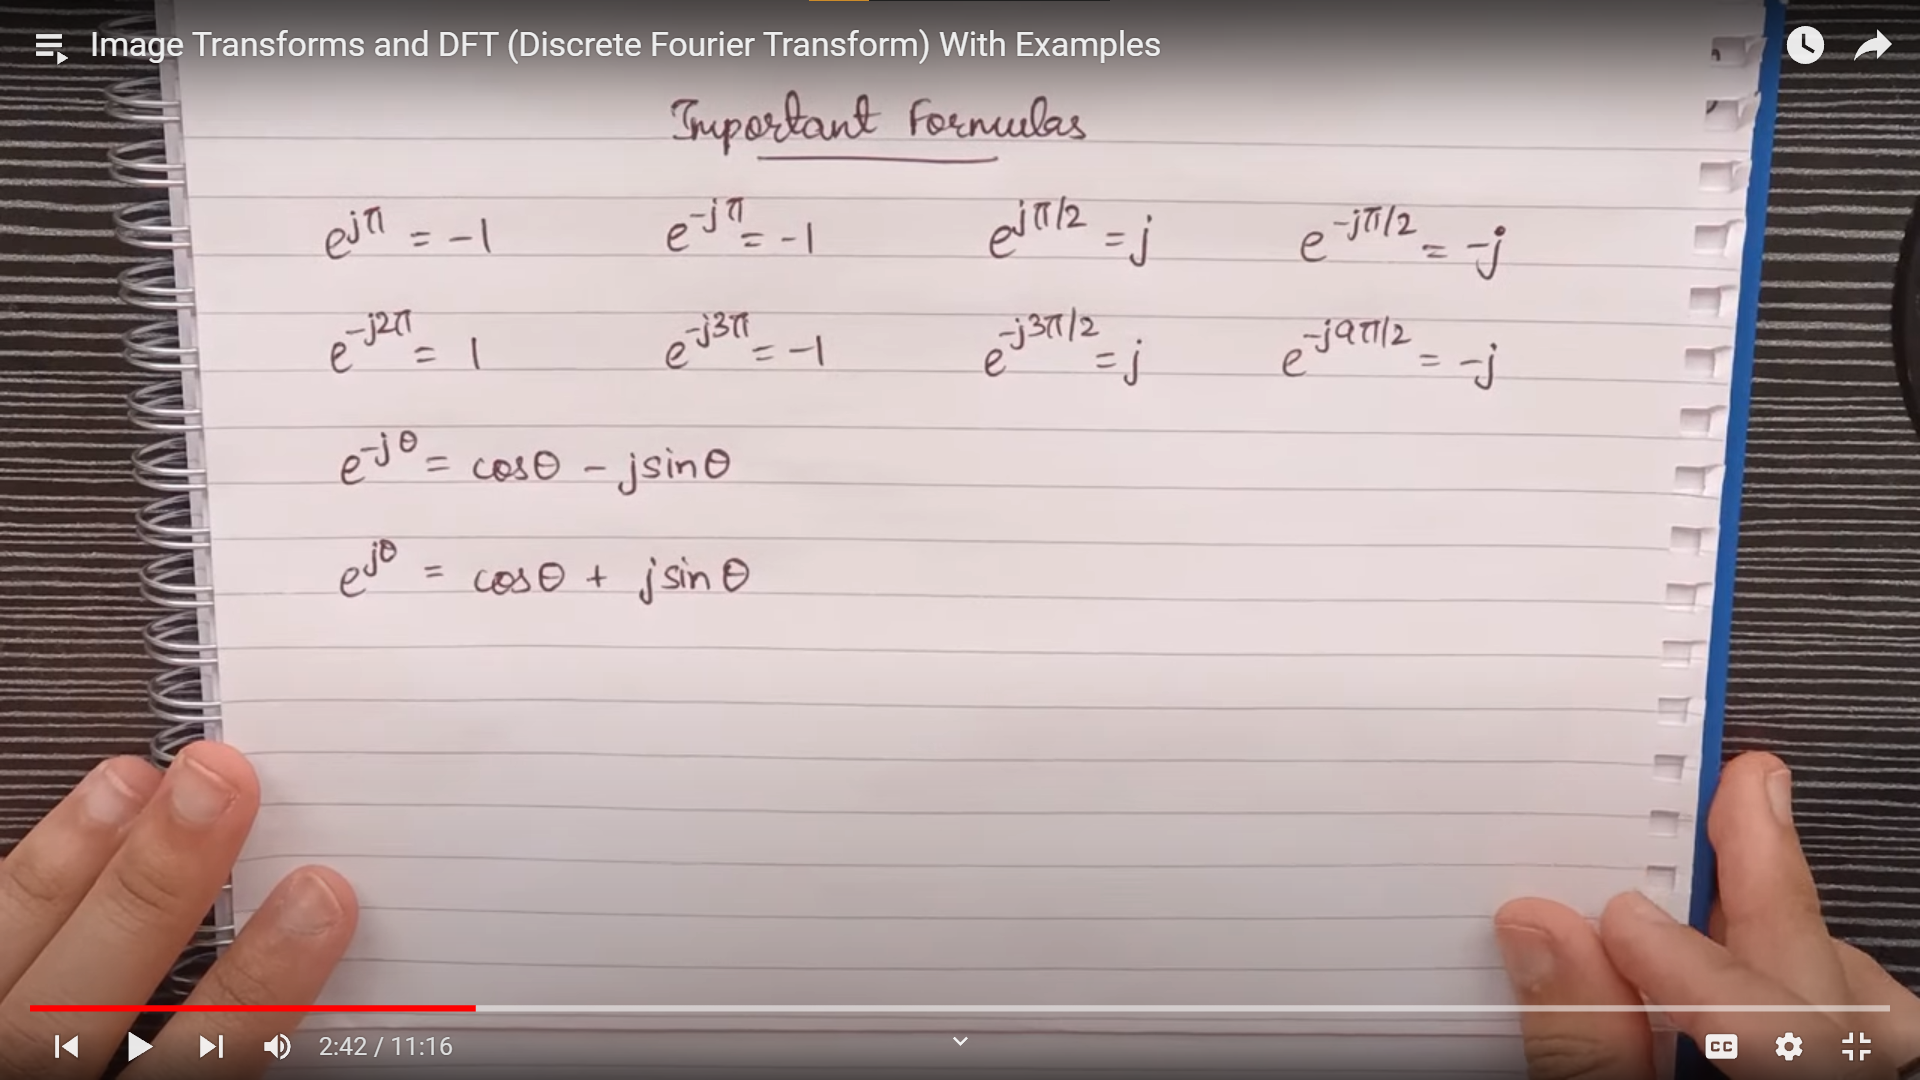 Image Transforms and DFT (Discrete Fourier Transform) With Examples
Important Formulas
e^{jπ} = -1 e^{-jπ} = -1 e^{jπ/2} = j e^{-jπ/2} = -j
e^{-j2π} = 1 e^{-j3π} = -1 e^{-j3π/2} = j e^{-j9π/2} = -j
e^{-jθ} = cosθ - jsinθ
e^{jθ} = cosθ + jsinθ
2:42 / 11:16
CC